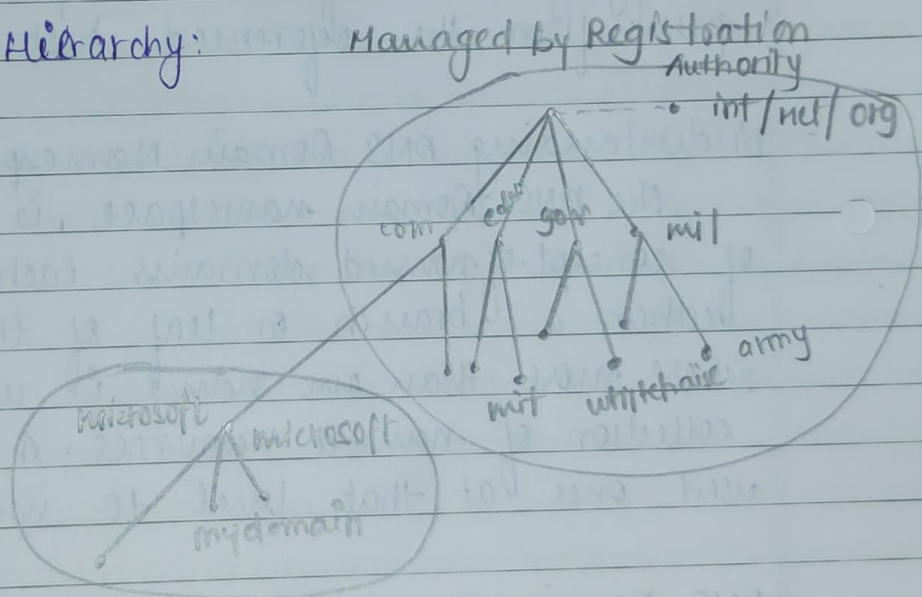 Hierarchy:
Managed by Registration
Authority
int/net/org
com edu gov mil
army
mit whitehouse
microsoft
microsoft
mydomain